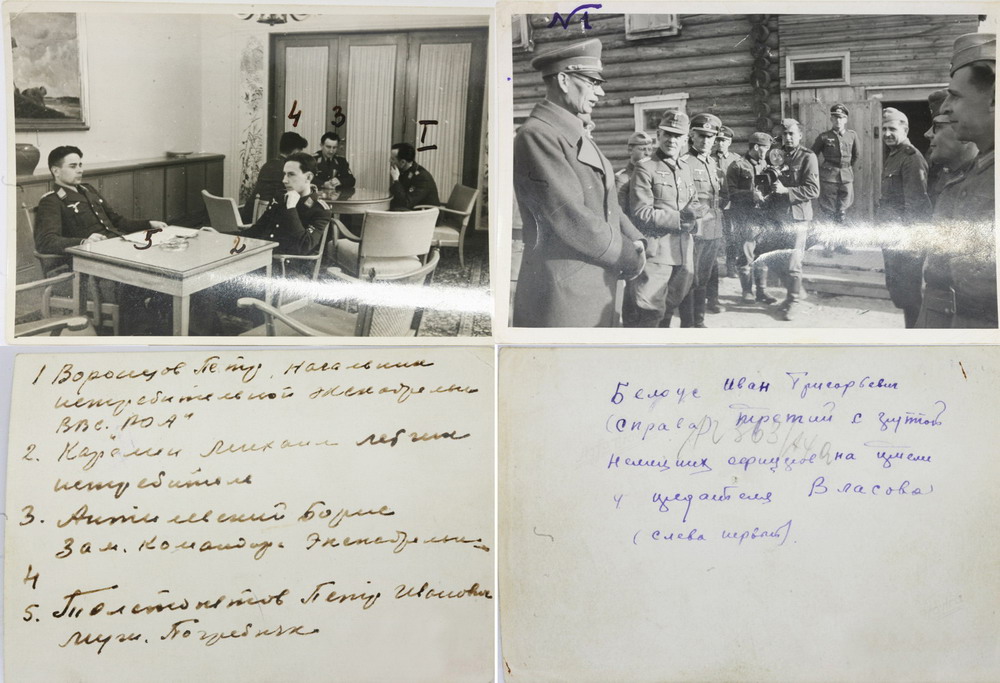 4
3
I
5
2
№1
1 Воронцов Петр, начальник
истребительной эскадрильи
ВВС. РОА"
2. Карамин Михаил летчик
истребитель
3. Антилевский Борис
Зам. Командира Эскадрильи
4
5. Толстопятов Петр Иванович
муж. Погребняк
Белоус Иван Григорьевич
(справа) третий с группой
немецких офицеров на
у предателя Власова
(слева первый).